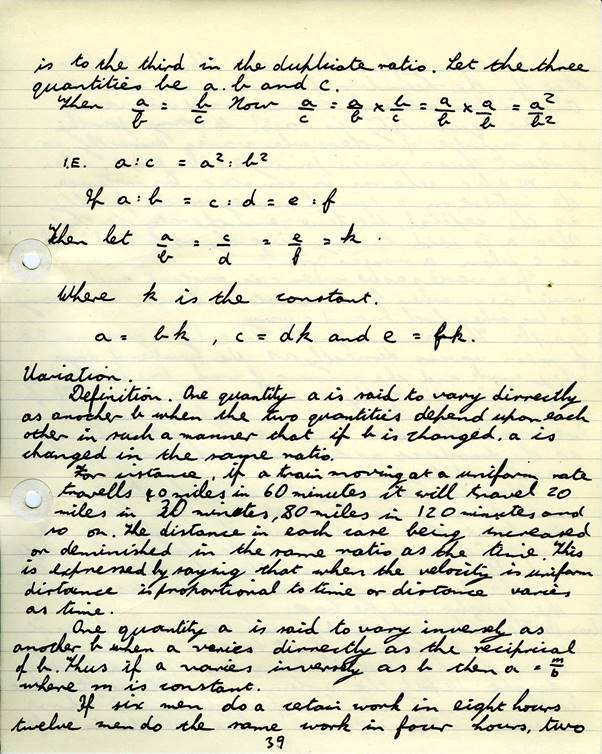 is to the third in the duplicate ratio. Let the three
quantities be a. b and c.
Then a/b = b/c Now a/c = a/b × b/c = a/b × a/b = a²/b²
I.E. a:c = a²:b²
If a:b = c:d = e:f
Then let a/b = c/d = e/f = k.
Where k is the constant.
a = bk, c = dk and e = fk.
Variation.
Definition. One quantity a is said to vary dirrectly
as another b when the two quantities depend upon each
other in such a manner that if b is changed, a is
changed in the same ratio.
For instance, if a train moving at a uniform rate
travells 40 miles in 60 minutes it will travel 20
miles in 30 minutes, 80 miles in 120 minutes and
so on. The distance in each case being increased
or deminished in the same ratio as the time. This
is expressed by saying that when the velocity is uniform
distance is proportional to time or distance varies
as time.
One quantity a is said to vary inversely as
another b when a varies dirrectly as the reciprical
of b. Thus if a varies inversely as b then a = m/b
where m is constant.
If six men do a cetain work in eight hours
twelve men do the same work in four hours, two
39